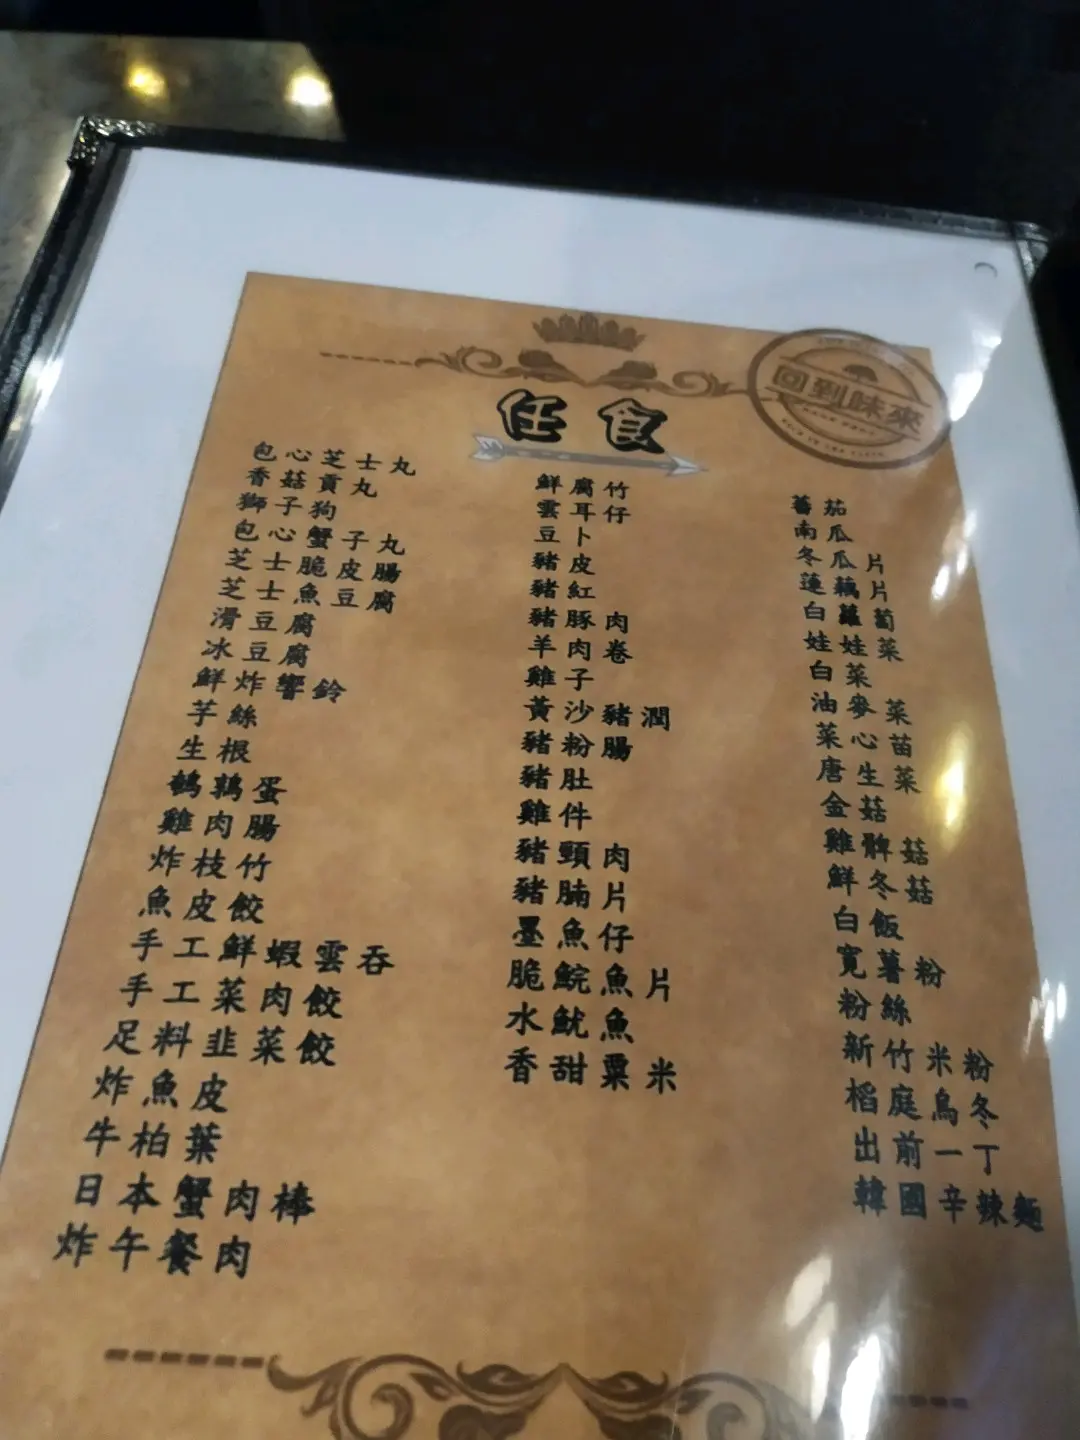 任食
回到味來
包心芝士丸
香菇貢丸
獅子狗
包心蟹子丸
芝士脆皮腸
芝士魚豆腐
滑豆腐
冰豆腐
鮮炸響鈴
芋絲
生根
鵪鶉蛋
雞肉腸
炸枝竹
魚皮餃
手工鮮蝦雲吞
手工菜肉餃
足料韭菜餃
炸魚皮
牛柏葉
日本蟹肉棒
炸午餐肉
鮮腐竹
雲耳仔
豆卜
豬皮
豬紅
豬豚肉
羊肉卷
雞子
黃沙豬潤
豬粉腸
豬肚
雞件
豬頸肉
豬腩片
墨魚仔
脆鯇魚片
水魷魚
香甜粟米
蕃茄
南瓜
冬瓜片
蓮藕片
白蘿蔔
娃娃菜
白菜
油麥菜
菜心苗
唐生菜
金菇
雞髀菇
鮮冬菇
白飯
寬薯粉
粉絲
新竹米粉
稻庭烏冬
出前一丁
韓國辛辣麵